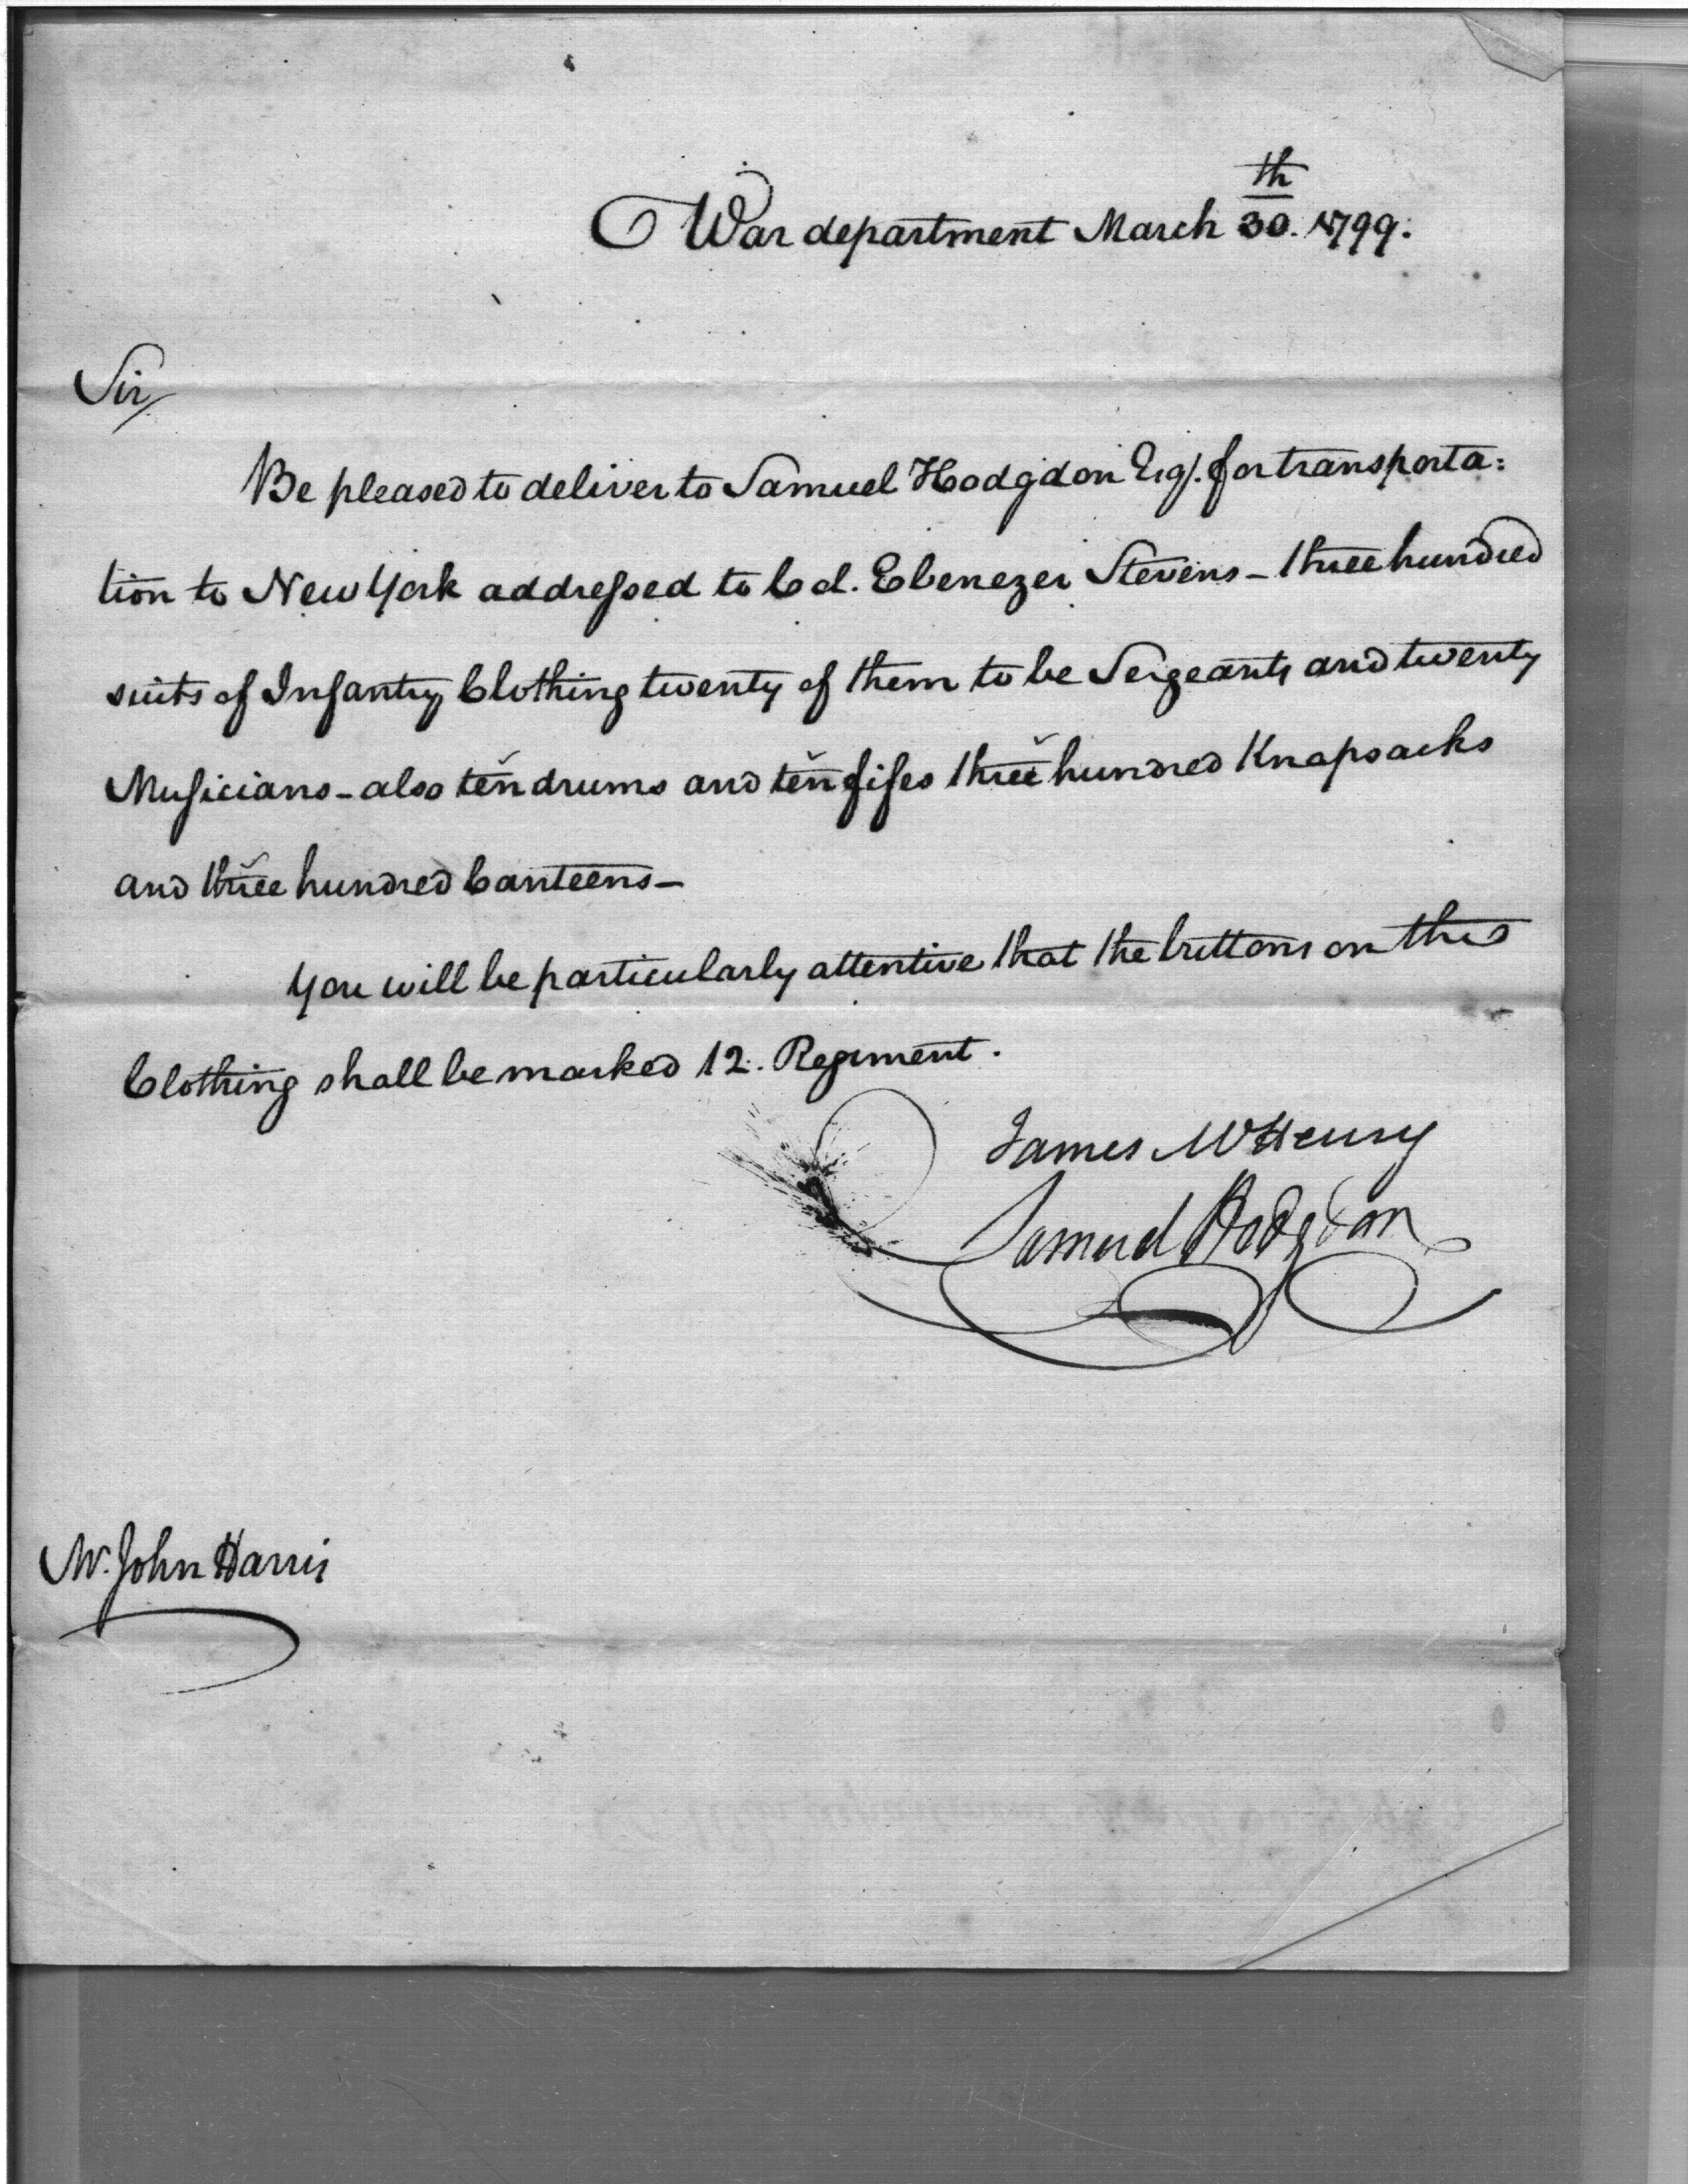 War department March 30.th 1799.
Sir/
Be pleased to deliver to Samuel Hodgdon Esq. for transporta=
tion to New York addressed to Col. Ebenezer Stevens – three hundred
suits of Infantry Clothing twenty of them to be Sergeants and twenty
Musicians – also ten drums and ten fifes three hundred Knapsacks
and three hundred Canteens –
You will be particularly attentive that the buttons on this
Clothing shall be marked 12. Regiment.
James McHenry
Samuel Hodgdon
Mr. John Harris